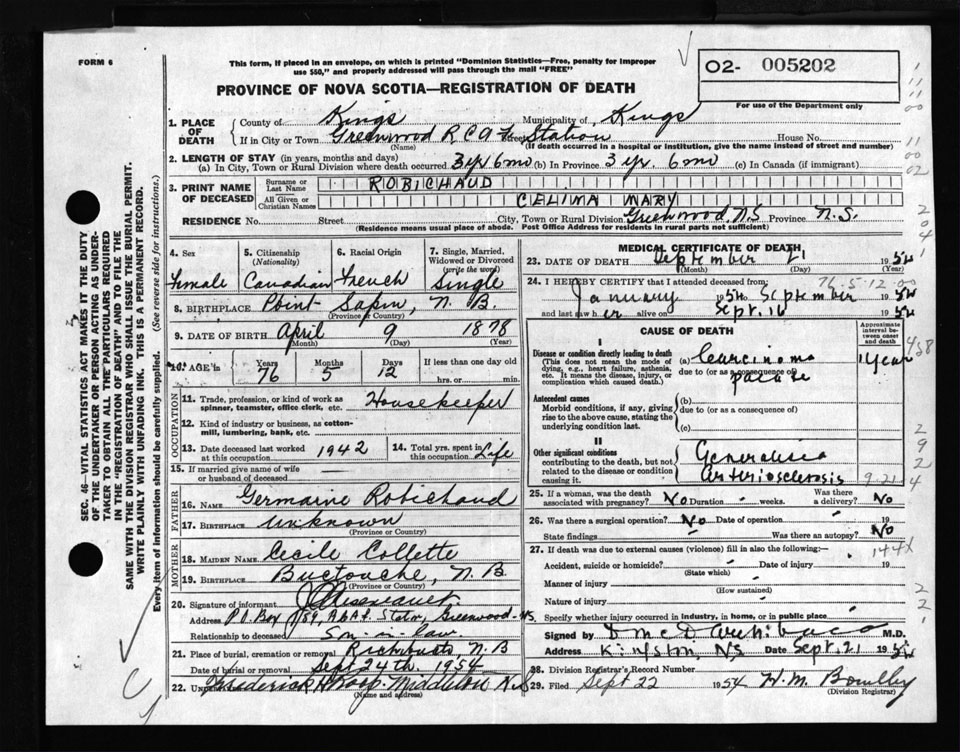 FORM 6
This form, if placed in an envelope, on which is printed "Dominion Statistics—Free, penalty for improper
use $50," and properly addressed will pass through the mail "FREE"
O2- 005202
For use of the Department only
PROVINCE OF NOVA SCOTIA—REGISTRATION OF DEATH
SEC. 46—VITAL STATISTICS ACT MAKES IT THE DUTY
OF THE UNDERTAKER OR PERSON ACTING AS UNDER-
TAKER TO OBTAIN ALL THE PARTICULARS REQUIRED
IN THE "REGISTRATION OF DEATH" AND TO FILE THE
SAME WITH THE DIVISION REGISTRAR WHO SHALL ISSUE THE BURIAL PERMIT.
WRITE PLAINLY WITH UNFADING INK. THIS IS A PERMANENT RECORD.
Every item of information should be carefully supplied. (See reverse side for instructions.)
1. PLACE OF DEATH
County of Kings Municipality of Kings
If in City or Town Greenwood R C A F Street Station House No.
(Name) (If death occurred in a hospital or institution, give the name instead of street and number)
2. LENGTH OF STAY (in years, months and days)
(a) In City, Town or Rural Division where death occurred 3 yr 6 mo (b) In Province 3 yr. 6 mo (c) In Canada (if immigrant)
3. PRINT NAME OF DECEASED
Surname or Last Name ROBICHAUD
All Given or Christian Names CELINA MARY
RESIDENCE No. Street City, Town or Rural Division Greenwood, N.S Province N.S.
(Residence means usual place of abode. Post Office Address for residents in rural parts not sufficient)
4. Sex
Female
5. Citizenship (Nationality)
Canadian
6. Racial Origin
French
7. Single, Married, Widowed or Divorced (write the word)
Single
8. BIRTHPLACE Point Sapin, N. B.
(Province or Country)
9. DATE OF BIRTH April 9 1878
(Month) (Day) (Year)
10. AGE in Years Months Days If less than one day old
76 5 12 hrs. or min.
OCCUPATION
11. Trade, profession, or kind of work as
spinner, teamster, office clerk, etc. Housekeeper
12. Kind of industry or business, as cotton-
mill, lumbering, bank, etc.
13. Date deceased last worked at this occupation 1942
14. Total yrs. spent in this occupation Life
15. If married give name of wife
or husband of deceased
FATHER
16. NAME Germaine Robichaud
17. BIRTHPLACE Unknown
(Province or Country)
MOTHER
18. MAIDEN NAME Cecile Collette
19. BIRTHPLACE Buctouche, N. B
(Province or Country)
20. Signature of informant
Address P.O. Box 189, Greenwood - NS
Relationship to deceased Son-in-law.
21. Place of burial, cremation or removal Richibucto, N. B
Date of burial or removal Sept 24th. 1954
22. Undertaker Frederick Middleton N.S
(Name and address)
MEDICAL CERTIFICATE OF DEATH
23. DATE OF DEATH September 21 1954
(Month) (Day) (Year)
24. I HEREBY CERTIFY that I attended deceased from: 76-5-12
January 1954 to September 1954
and last saw her alive on Sept. 16 1954
CAUSE OF DEATH
Approximate interval between onset and death
I
Disease or condition directly leading to death
(This does not mean the mode of dying, e.g., heart failure, asthenia, etc. It means the disease, injury, or complication which caused death.)
(a) Carcinoma
due to (or as a consequence of)
1 Year
Antecedent causes
Morbid conditions, if any, giving rise to the above cause, stating the underlying condition last.
(b)
due to (or as a consequence of)
(c)
II
Other significant conditions
contributing to the death, but not related to the disease or condition causing it.
Generalised
Arteriosclerosis
9-21
25. If a woman, was the death associated with pregnancy? No Duration weeks. Was there a delivery? No
26. Was there a surgical operation? No Date of operation 19
State findings Was there an autopsy? No
27. If death was due to external causes (violence) fill in also the following:
Accident, suicide or homicide? Date of injury 19
(State which)
Manner of injury
(How sustained)
Nature of injury
Specify whether injury occurred in industry, in home, or in public place
Signed by M.D.
Address Kingston NS Date Sept. 21 1954
28. Division Registrar's Record Number
29. Filed Sept 22 1954 H. M. Bowlby
(Division Registrar)